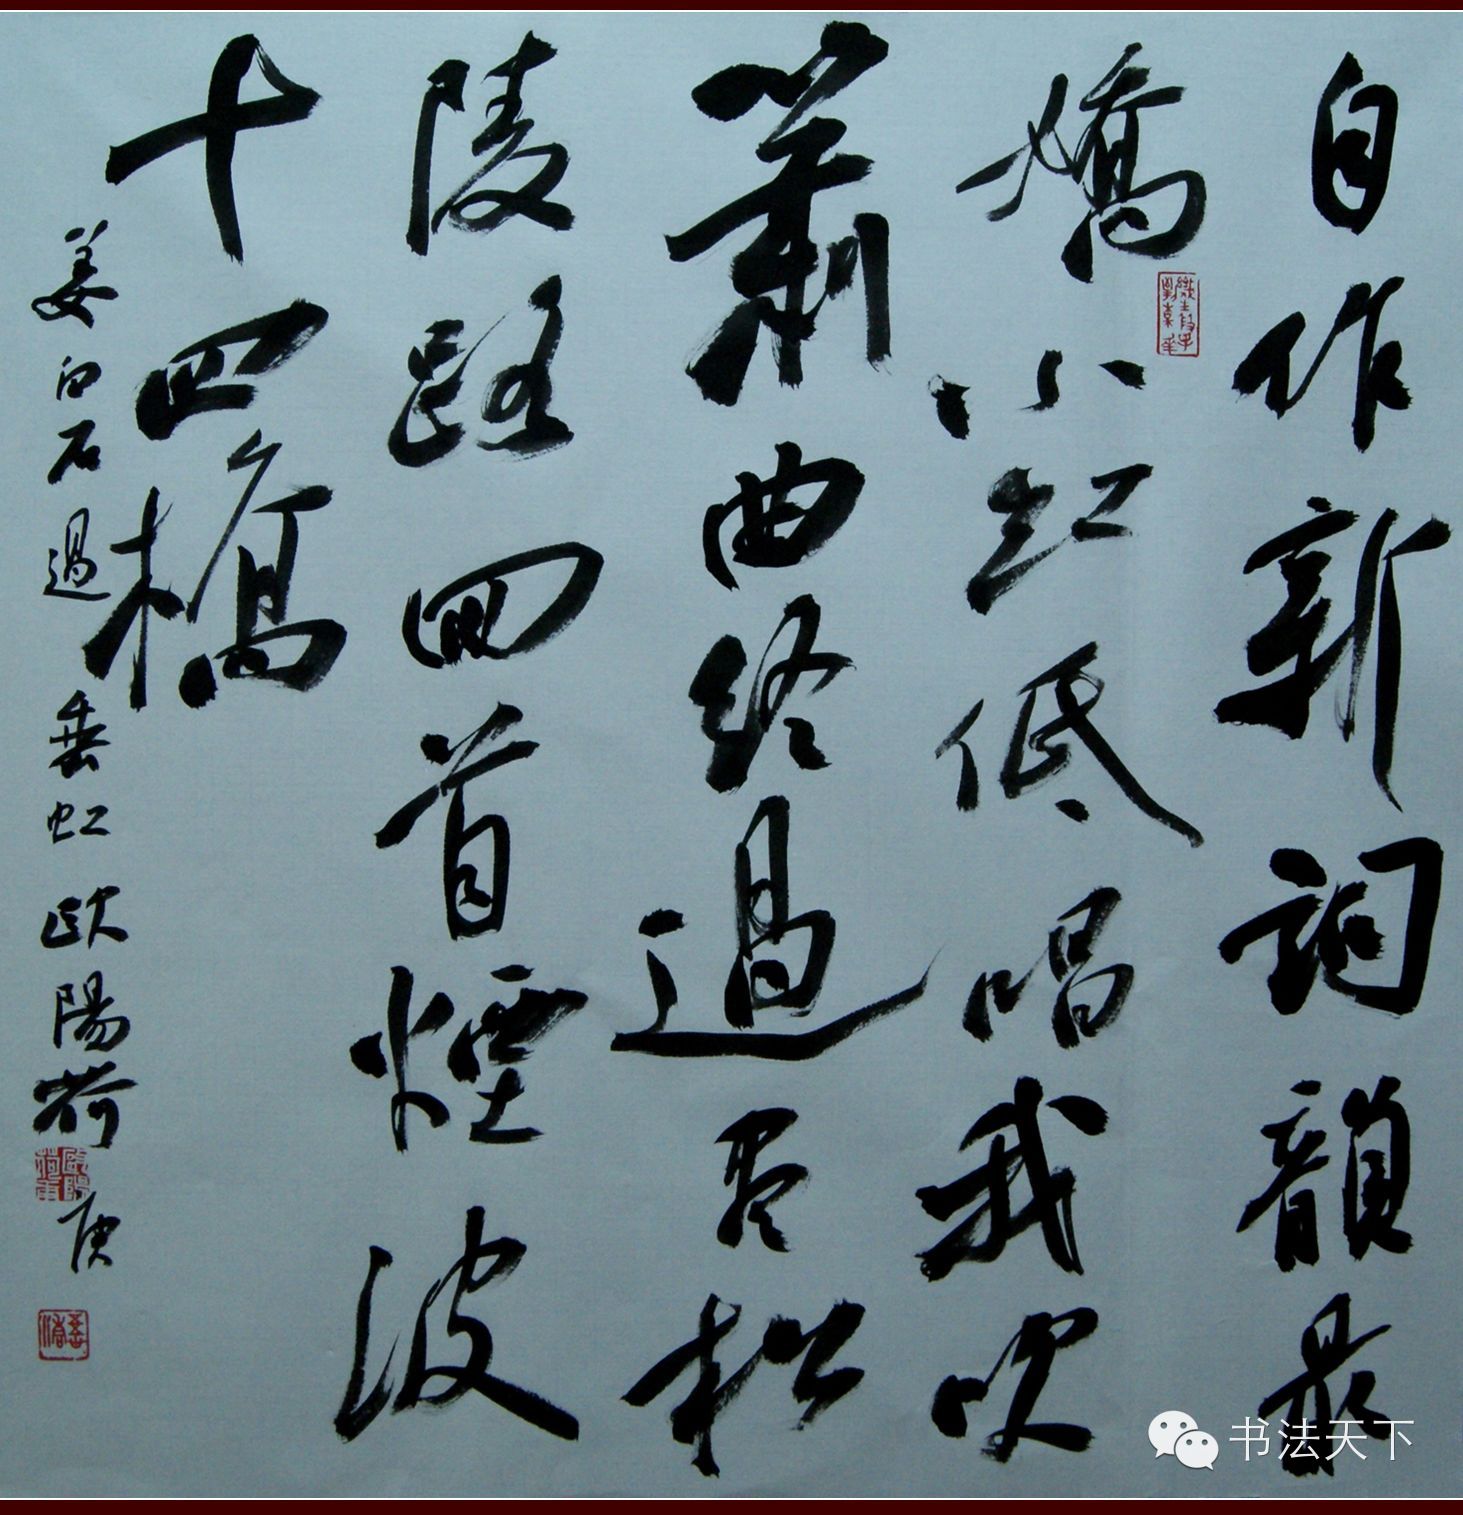 自作新詞韻最
嬌小紅低唱我吹
簫曲終過尽松
陵路回首煙波
十四橋
姜白石過垂虹 歐陽荷庚
书法天下